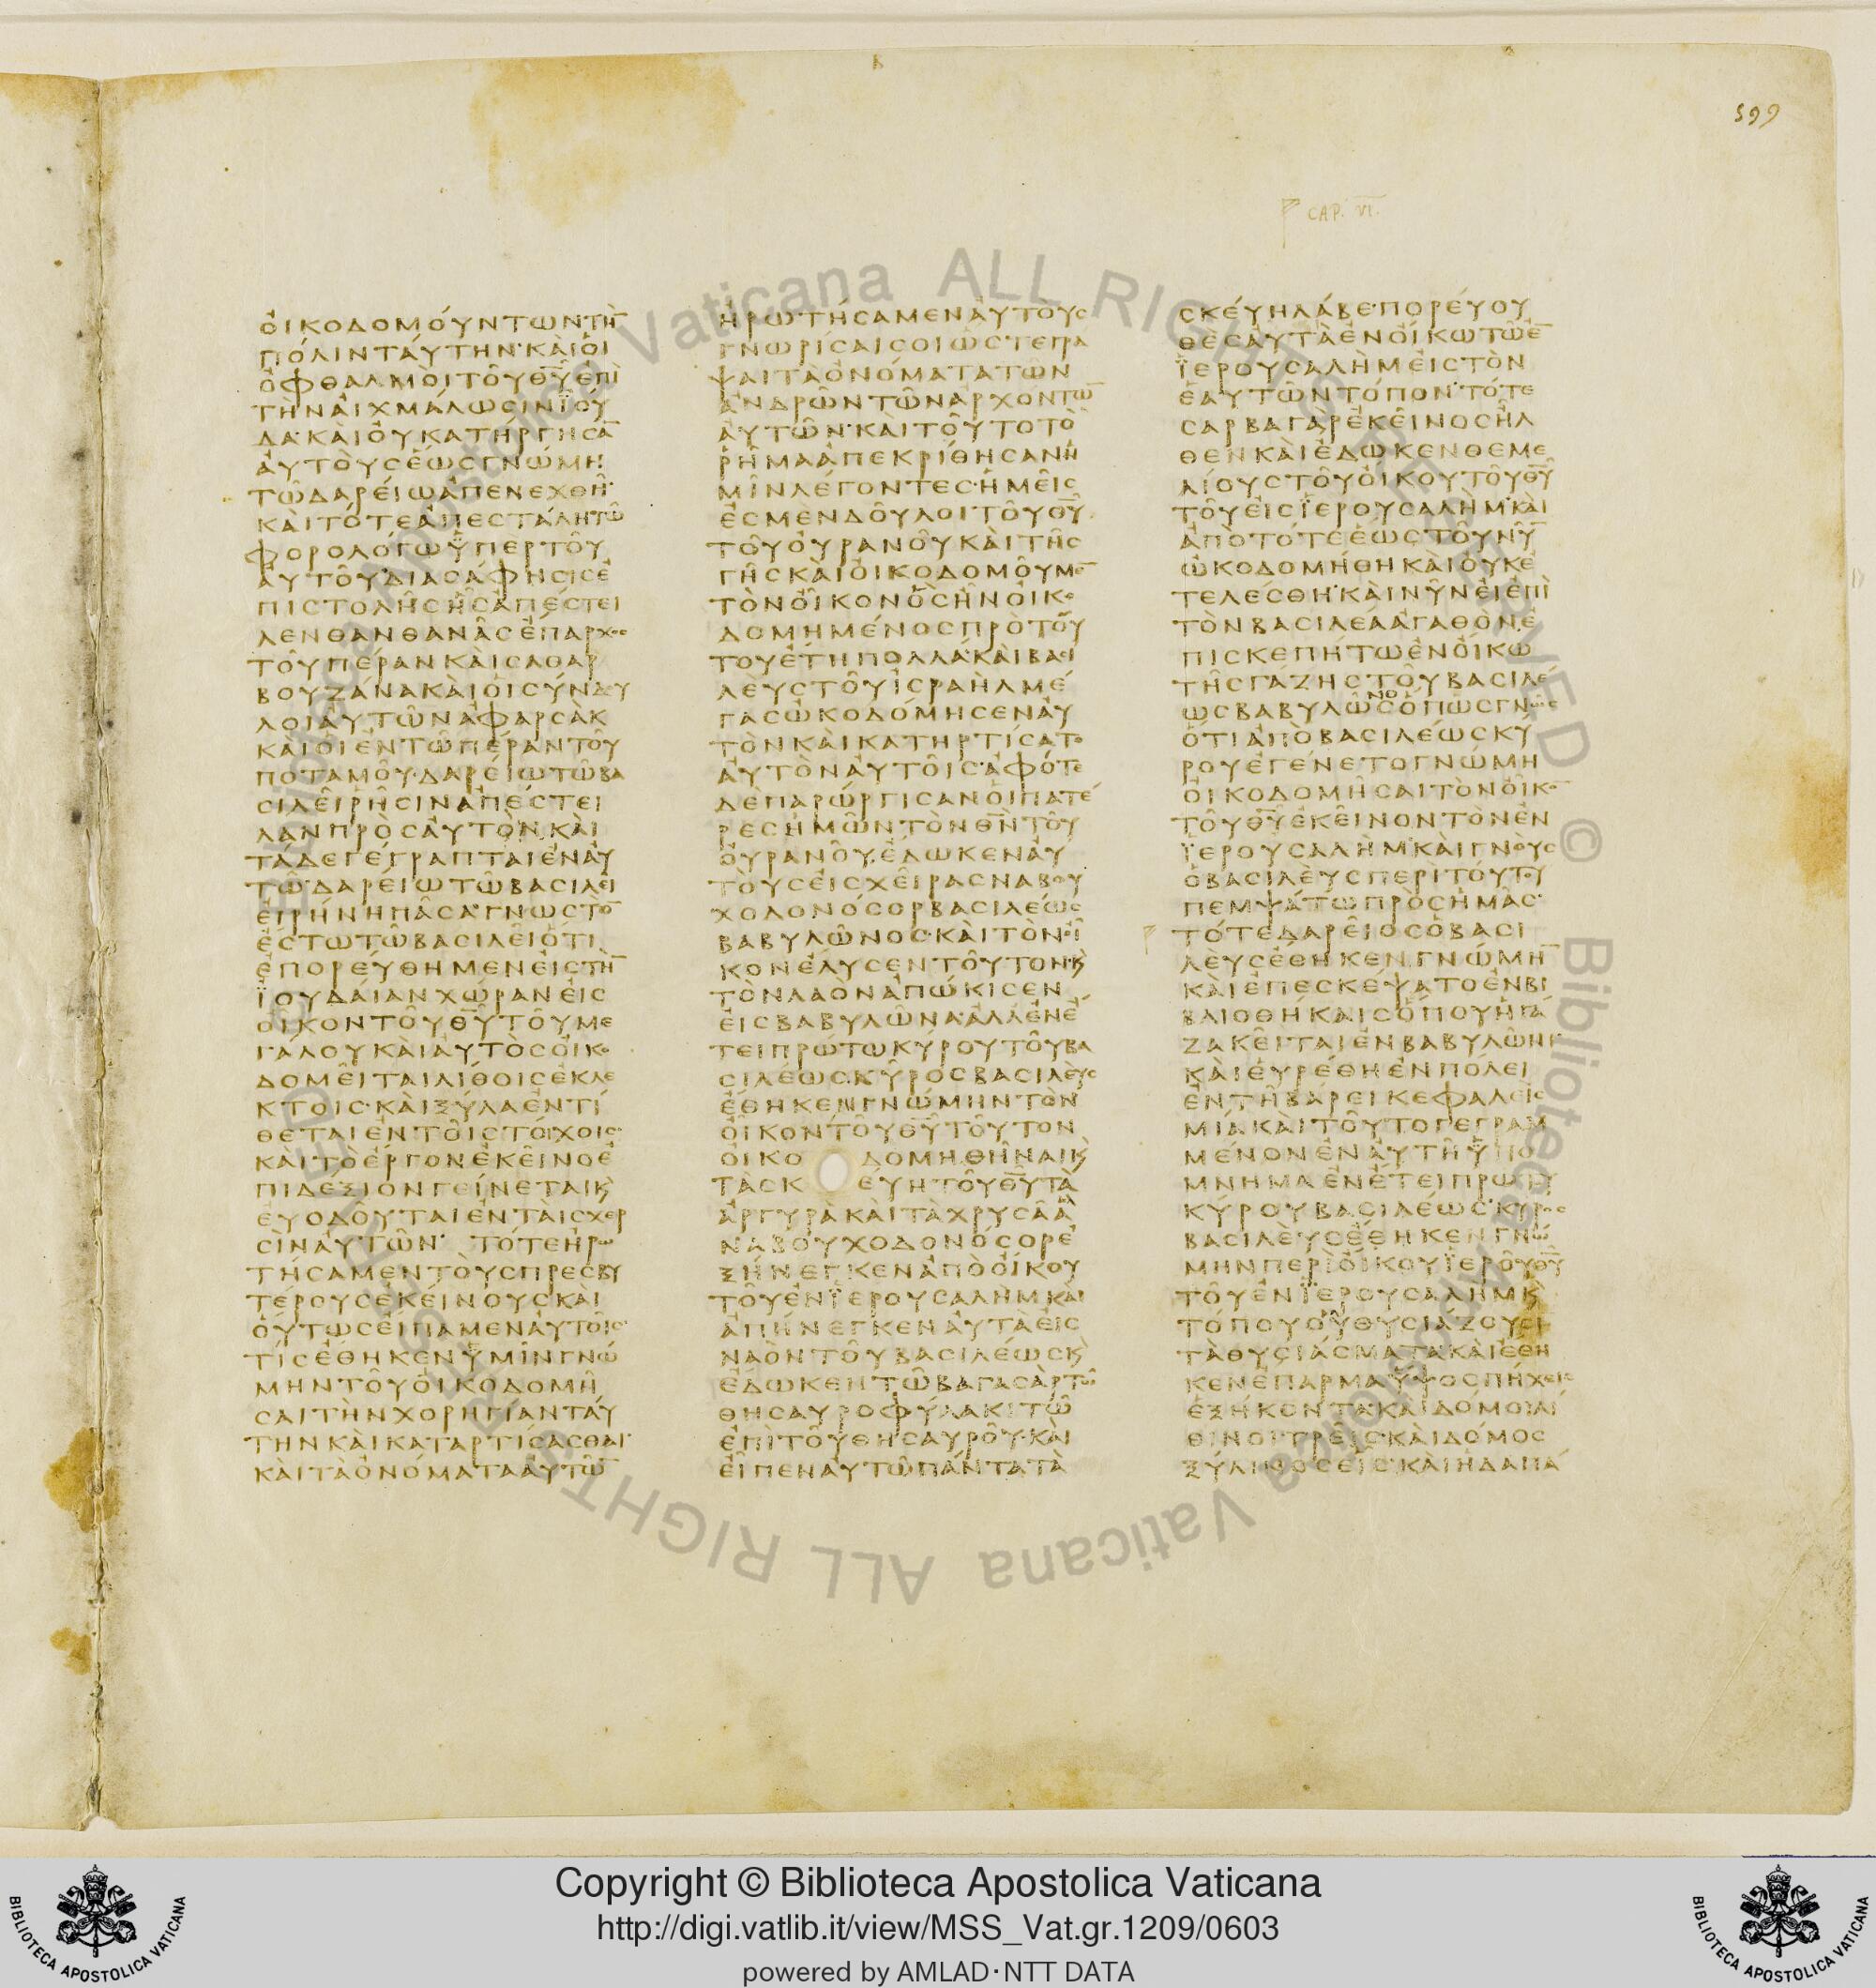 599
CAP. VI.
ΟΙΚΟΔΟΜΟΥΝΤΩΝΤΗ̅
ΠΟΛΙΝΤΑΥΤΗΝ·ΚΑΙΟΙ
ΟΦΘΑΛΜΟΙΤΟΥΘ̅Υ̅ΕΠΙ
ΤΗΝΑΙΧΜΑΛΩϹΙΝΪΟΥ
ΔΑ·ΚΑΙΟΥΚΑΤΗΡΓΗϹΑ̅
ΑΥΤΟΥϹΕΩϹΓΝΩΜΗ
ΤΩΔΑΡΕΙΩΑΠΕΝΕΧΘΗ·
ΚΑΙΤΟΤΕΑΠΕϹΤΑΛΗΤΩ
ΦΟΡΟΛΟΓΩΫΠΕΡΤΟΥ
ΑΥΤΟΥΔΙΑϹΑΦΗϹΙϹΕ
ΠΙϹΤΟΛΗϹΗϹΑΠΕϹΤΕΙ
ΛΕΝΘΑΝΘΑΝΑϹΕΠΑΡΧΟϹ
ΤΟΥΠΕΡΑΝΚΑΙϹΑΘΑΡ
ΒΟΥΖΑΝΑΚΑΙΟΙϹΥΝΔΥ
ΛΟΙΑΥΤΩΝΑΦΑΡϹΑΚ
ΚΑΙΟΙΕΝΤΩΠΕΡΑΝΤΟΥ
ΠΟΤΑΜΟΥ·ΔΑΡΕΙΩΤΩΒΑ
ϹΙΛΕΙΡΗϹΙΝΑΠΕϹΤΕΙ
ΛΑΝΠΡΟϹΑΥΤΟΝΚΑΙ
ΤΑΔΕΓΕΓΡΑΠΤΑΙΕΝΑΥ
ΤΩ·ΔΑΡΕΙΩΤΩΒΑϹΙΛΕΙ
ΕΙΡΗΝΗΠΑϹΑ·ΓΝΩϹΤΟ̅
ΕϹΤΩΤΩΒΑϹΙΛΕΙΟΤΙ
ΕΠΟΡΕΥΘΗΜΕΝΕΙϹΤΗ̅
ΪΟΥΔΑΙΑΝΧΩΡΑΝΕΙϹ
ΟΙΚΟΝΤΟΥΘ̅Υ̅ΤΟΥΜΕ
ΓΑΛΟΥΚΑΙΑΥΤΟϹΟΙΚΟ
ΔΟΜΕΙΤΑΙΛΙΘΟΙϹΕΚΛΕ
ΚΤΟΙϹ·ΚΑΙΞΥΛΑΕΝΤΙ
ΘΕΤΑΙΕΝΤΟΙϹΤΟΙΧΟΙϹ·
ΚΑΙΤΟΕΡΓΟΝΕΚΕΙΝΟΕ
ΠΙΔΕΞΙΟΝΓΕΙΝΕΤΑΙΚϏ
ΕΥΟΔΟΥΤΑΙΕΝΤΑΙϹΧΕΡ
ϹΙΝΑΥΤΩΝ· ΤΟΤΕΗΡΩ
ΤΗϹΑΜΕΝΤΟΥϹΠΡΕϹΒΥ
ΤΕΡΟΥϹΕΚΕΙΝΟΥϹΚΑΙ
ΟΥΤΩϹΕΙΠΑΜΕΝΑΥΤΟΙϹ·
ΤΙϹΕΘΗΚΕΝΫΜΙΝΓΝΩ
ΜΗΝΤΟΥΟΙΚΟΔΟΜΗ
ϹΑΙΤΗΝΧΟΡΗΓΙΑΝΤΑΥ
ΤΗΝΚΑΙΚΑΤΑΡΤΙϹΑϹΘΑΙ·
ΚΑΙΤΑΟΝΟΜΑΤΑΑΥΤΩ̅
ΗΡΩΤΗϹΑΜΕΝΑΥΤΟΥϹ
ΓΝΩΡΙϹΑΙϹΟΙΩϹΤΕΓΡΑ
ΨΑΙΤΑΟΝΟΜΑΤΑΤΩΝ
ΑΝΔΡΩΝΤΩΝΑΡΧΟΝΤΩ̅
ΑΥΤΩΝ·ΚΑΙΤΟΥΤΟΤΟ
ΡΗΜΑΑΠΕΚΡΙΘΗϹΑΝΗ
ΜΙΝΛΕΓΟΝΤΕϹ·ΗΜΕΙϹ
ΕϹΜΕΝΔΟΥΛΟΙΤΟΥΘ̅Υ̅
ΤΟΥΟΥΡΑΝΟΥΚΑΙΤΗϹ
ΓΗϹΚΑΙΟΙΚΟΔΟΜΟΥΜΕ̅
ΤΟΝΟΙΚΟΝΟϹΗΝΟΙΚΟ
ΔΟΜΗΜΕΝΟϹΠΡΟΤΟΥ
ΤΟΥΕΤΗΠΟΛΛΑ·ΚΑΙΒΑϹΙ
ΛΕΥϹΤΟΥΙϹΡΑΗΛΜΕ
ΓΑϹΩΚΟΔΟΜΗϹΕΝΑΥ
ΤΟΝΚΑΙΚΑΤΗΡΤΙϹΑΤΟ
ΑΥΤΟΝΑΥΤΟΙϹ·ΑΦΟΤΕ
ΔΕΠΑΡΩΡΓΙϹΑΝΟΙΠΑΤΕ
ΡΕϹΗΜΩΝΤΟΝΘ̅Ν̅ΤΟΥ
ΟΥΡΑΝΟΥ·ΕΔΩΚΕΝΑΥ
ΤΟΥϹΕΙϹΧΕΙΡΑϹΝΑΒΟΥ
ΧΟΔΟΝΟϹΟΡΒΑϹΙΛΕΩϹ
ΒΑΒΥΛΩΝΟϹ·ΚΑΙΤΟΝΟΙ
ΚΟΝΕΛΥϹΕΝΤΟΥΤΟΝ·ΚϏ
ΤΟΝΛΑΟΝΑΠΩΚΙϹΕΝ
ΕΙϹΒΑΒΥΛΩΝΑ·ΑΛΛΕΝΕ
ΤΕΙΠΡΩΤΩΚΥΡΟΥΤΟΥΒΑ
ϹΙΛΕΩϹ·ΚΥΡΟϹΒΑϹΙΛΕΥϹ
ΕΘΗΚΕΝΓΝΩΜΗΝΤΟΝ
ΟΙΚΟΝΤΟΥΘ̅Υ̅ΤΟΥΤΟΝ
ΟΙΚΟ ΔΟΜΗΘΗΝΑΙΚϏ
ΤΑϹΚ ΕΥΗΤΟΥΘ̅Υ̅ΤΑ
ΑΡΓΥΡΑΚΑΙΤΑΧΡΥϹΑΑ
ΝΑΒΟΥΧΟΔΟΝΟϹΟΡΕ
ΞΗΝΕΓΚΕΝΑΠΟΟΙΚΟΥ
ΤΟΥΕΝΪΕΡΟΥϹΑΛΗΜΚΑΙ
ΑΠΗΝΕΓΚΕΝΑΥΤΑΕΙϹ
ΝΑΟΝΤΟΥΒΑϹΙΛΕΩϹΚϏ
ΕΔΩΚΕΝΤΩΒΑΓΑϹΑΡΤΩ
ΘΗϹΑΥΡΟΦΥΛΑΚΙΤΩ
ΕΠΙΤΟΥΘΗϹΑΥΡΟΥ·ΚΑΙ
ΕΙΠΕΝΑΥΤΩΠΑΝΤΑΤΑ
ϹΚΕΥΗΛΑΒΕ·ΠΟΡΕΥΟΥ
ΘΕϹΑΥΤΑΕΝΟΙΚΩΤΩΕ̅
ΪΕΡΟΥϹΑΛΗΜΕΙϹΤΟΝ
ΕΑΥΤΩΝΤΟΠΟΝ·ΤΟΤΕ
ϹΑΡΒΑΓΑΡΕΚΕΙΝΟϹΗΛ
ΘΕΝΚΑΙΕΔΩΚΕΝΘΕΜΕ
ΛΙΟΥϹΤΟΥΟΙΚΟΥΤΟΥΘ̅Υ̅
ΤΟΥΕΙϹΪΕΡΟΥϹΑΛΗΜ·ΚΑΙ
ΑΠΟΤΟΤΕΕΩϹΤΟΥΝΥ̅
ΩΚΟΔΟΜΗΘΗΚΑΙΟΥΚΕ
ΤΕΛΕϹΘΗ·ΚΑΙΝΥΝΕΙΕΠΙ
ΤΟΝΒΑϹΙΛΕΑΑΓΑΘΟΝ·Ε
ΠΙϹΚΕΠΗΤΩΕΝΟΙΚΩ
ΤΗϹΓΑΖΗϹΤΟΥΒΑϹΙΛΕ
ΩϹΒΑΒΥΛΩΝΟϹΟΠΩϹΓΝΩϹ
ΟΤΙΑΠΟΒΑϹΙΛΕΩϹΚΥ
ΡΟΥΕΓΕΝΕΤΟΓΝΩΜΗ
ΟΙΚΟΔΟΜΗϹΑΙΤΟΝΟΙΚΟ̅
ΤΟΥΘ̅Υ̅ΕΚΕΙΝΟΝΤΟΝΕΝ
ΪΕΡΟΥϹΑΛΗΜ·ΚΑΙΓΝΟΥϹ
ΟΒΑϹΙΛΕΥϹΠΕΡΙΤΟΥΤΟΥ
ΠΕΜΨΑΤΩΠΡΟϹΗΜΑϹ·
ΤΟΤΕΔΑΡΕΙΟϹΟΒΑϹΙ
ΛΕΥϹΕΘΗΚΕΝΓΝΩΜΗ̅
ΚΑΙΕΠΕϹΚΕΨΑΤΟΕΝΒΙ
ΒΛΙΟΘΗΚΑΙϹΟΠΟΥΗΓΑ
ΖΑΚΕΙΤΑΙΕΝΒΑΒΥΛΩΝΙ·
ΚΑΙΕΥΡΕΘΗΕΝΠΟΛΕΙ
ΕΝΤΗΒΑΡΕΙΚΕΦΑΛΕΙϹ
ΜΙΑΚΑΙΤΟΥΤΟΓΕΓΡΑΜ
ΜΕΝΟΝΕΝΑΥΤΗΫΠΟ
ΜΝΗΜΑΕΝΕΤΕΙΠΡΩΤΩ
ΚΥΡΟΥΒΑϹΙΛΕΩϹ·ΚΥΡΟϹ
ΒΑϹΙΛΕΥϹΕΘΗΚΕΝΓΝΩ
ΜΗΝΠΕΡΙΟΙΚΟΥΪΕΡΟΥΘ̅Υ̅
ΤΟΥΕΝΪΕΡΟΥϹΑΛΗΜΚϏ
ΤΟΠΟΥΟΥΘΥϹΙΑΖΟΥϹΙ
ΤΑΘΥϹΙΑϹΜΑΤΑΚΑΙΕΘΗ
ΚΕΝΕΠΑΡΜΑΫΨΟϹΠΗΧΕΙϹ
ΕΞΗΚΟΝΤΑ·ΚΑΙΔΟΜΟΙΛΙ
ΘΙΝΟΙΤΡΕΙϹ·ΚΑΙΔΟΜΟϹ
ΞΥΛΙΝΟϹΕΙϹ·ΚΑΙΗΔΑΠΑ
Copyright © Biblioteca Apostolica Vaticana
http://digi.vatlib.it/view/MSS_Vat.gr.1209/0603
powered by AMLAD·NTT DATA
BIBLIOTECA APOSTOLICA VATICANA
BIBLIOTECA APOSTOLICA VATICANA
Biblioteca Apostolica Vaticana ALL RIGHTS RESERVED ©